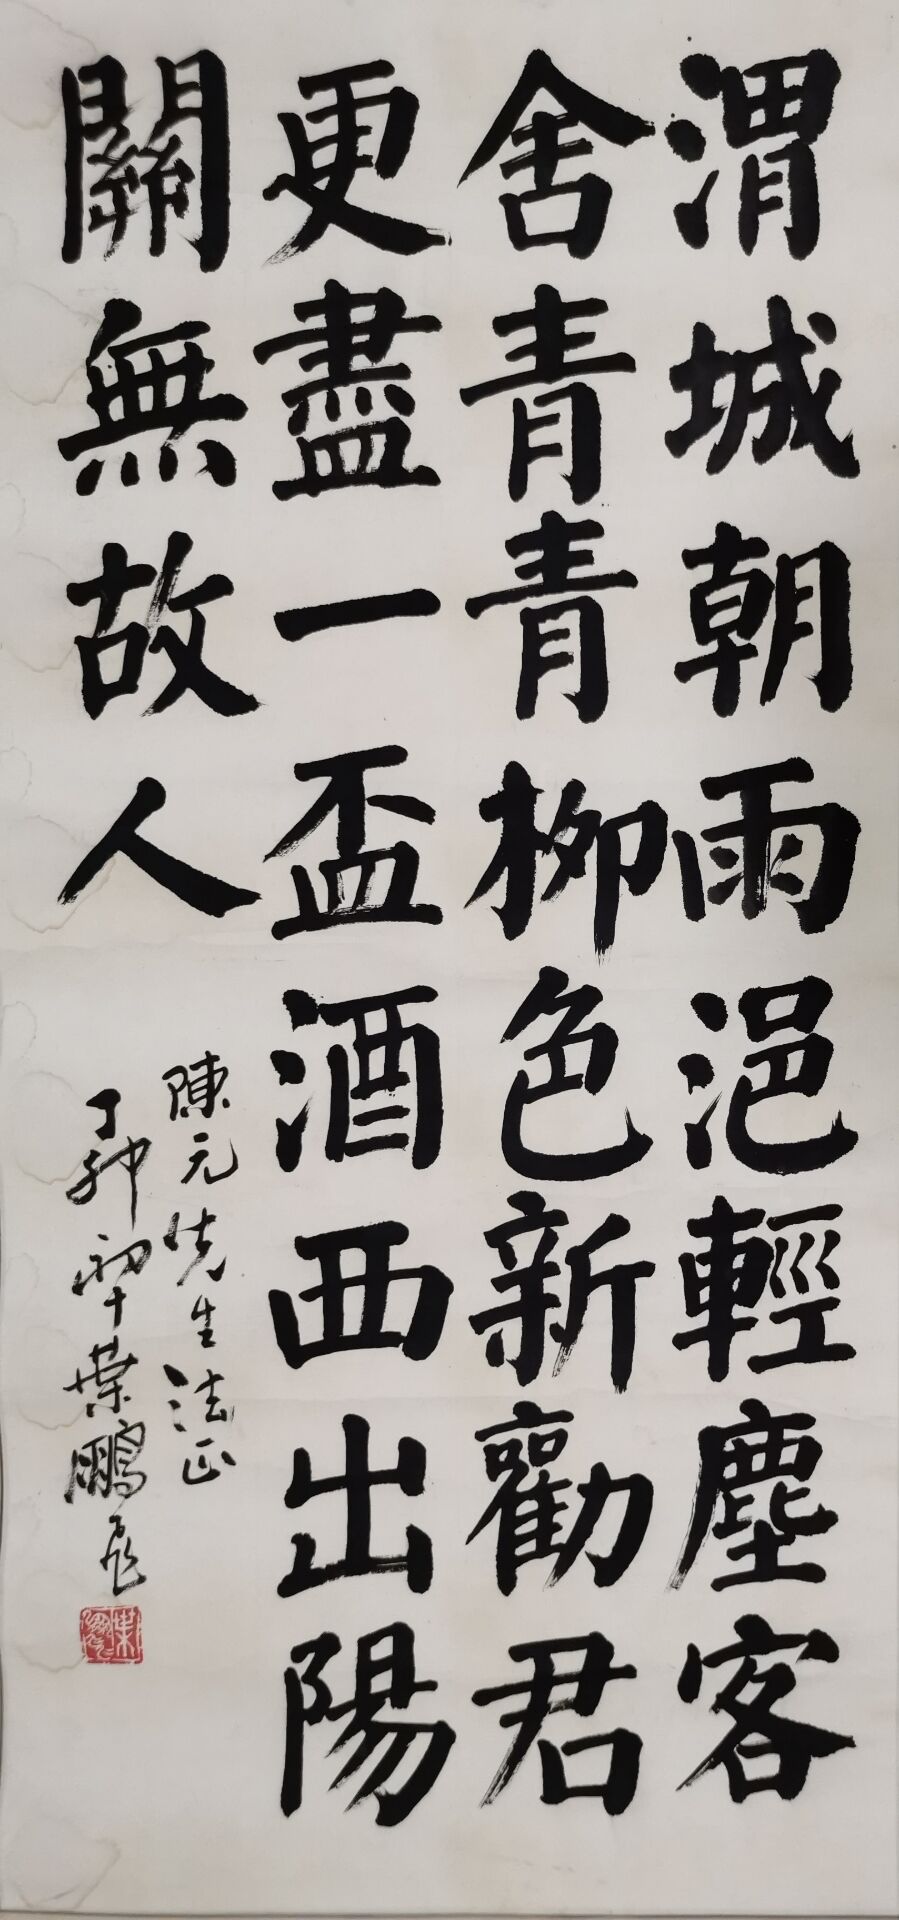 渭城朝雨浥輕塵客
舍青青柳色新勸君
更盡一盃酒西出陽
關無故人
陳元先生法正
丁卯初冬葉鵬飛